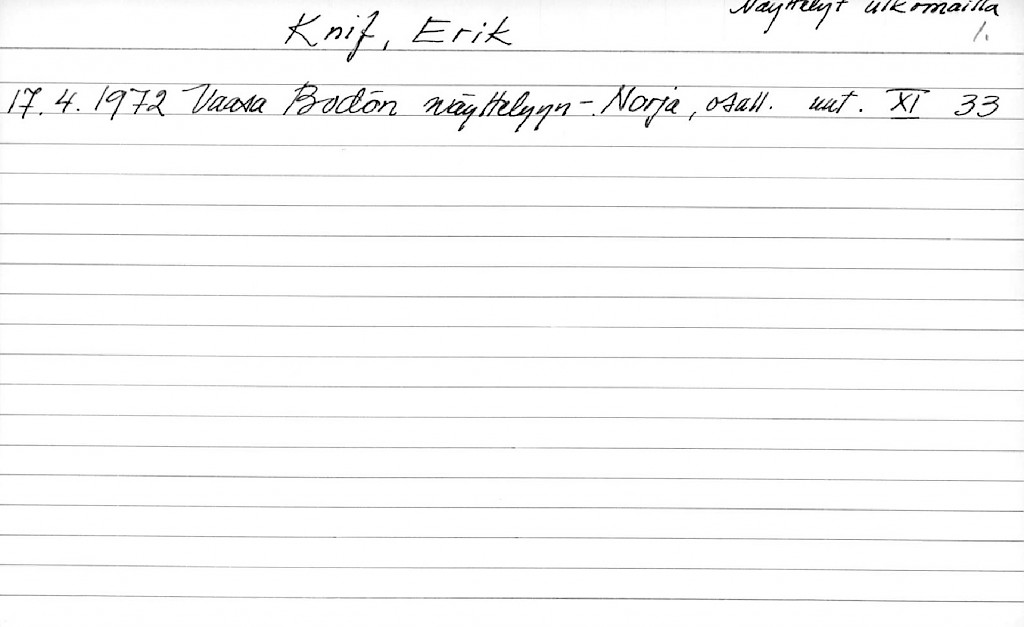 Näyttelyt ulkomailla
Knif, Erik
1.
17.4.1972 Vaasa Bodön näyttelyyn - Norja, osall. uut. XI 33